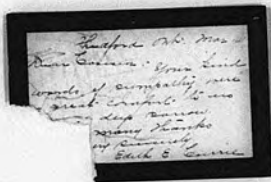 Dear Cousin. Your kind
words of sympathy were
great comfort to us
deep sorrow
many thanks
sincerely
Edith E. Currie